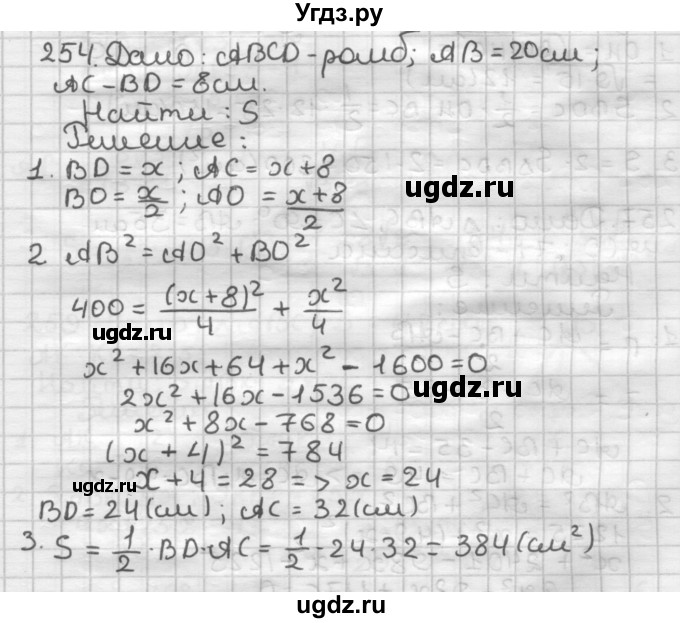 Угдз.ру
254. Дано: ABCD - ромб; AB = 20см;
AC - BD = 8см.
Найти: S
Решение:
1. BD = x; AC = x + 8
BO = x/2; AO = (x + 8)/2
ugdz.ru
2 AB² = AO² + BO²
400 = (x + 8)²/4 + x²/4
ugdz.ru
x² + 16x + 64 + x² - 1600 = 0
2x² + 16x - 1536 = 0
ugdz.ru
x² + 8x - 768 = 0
(x + 4)² = 784
x + 4 = 28 => x = 24
ugdz.ru
BD = 24 (см); AC = 32 (см)
3. S = 1/2 · BD · AC = 1/2 · 24 · 32 = 384 (см²)
ugdz.ru
ugdz.ru